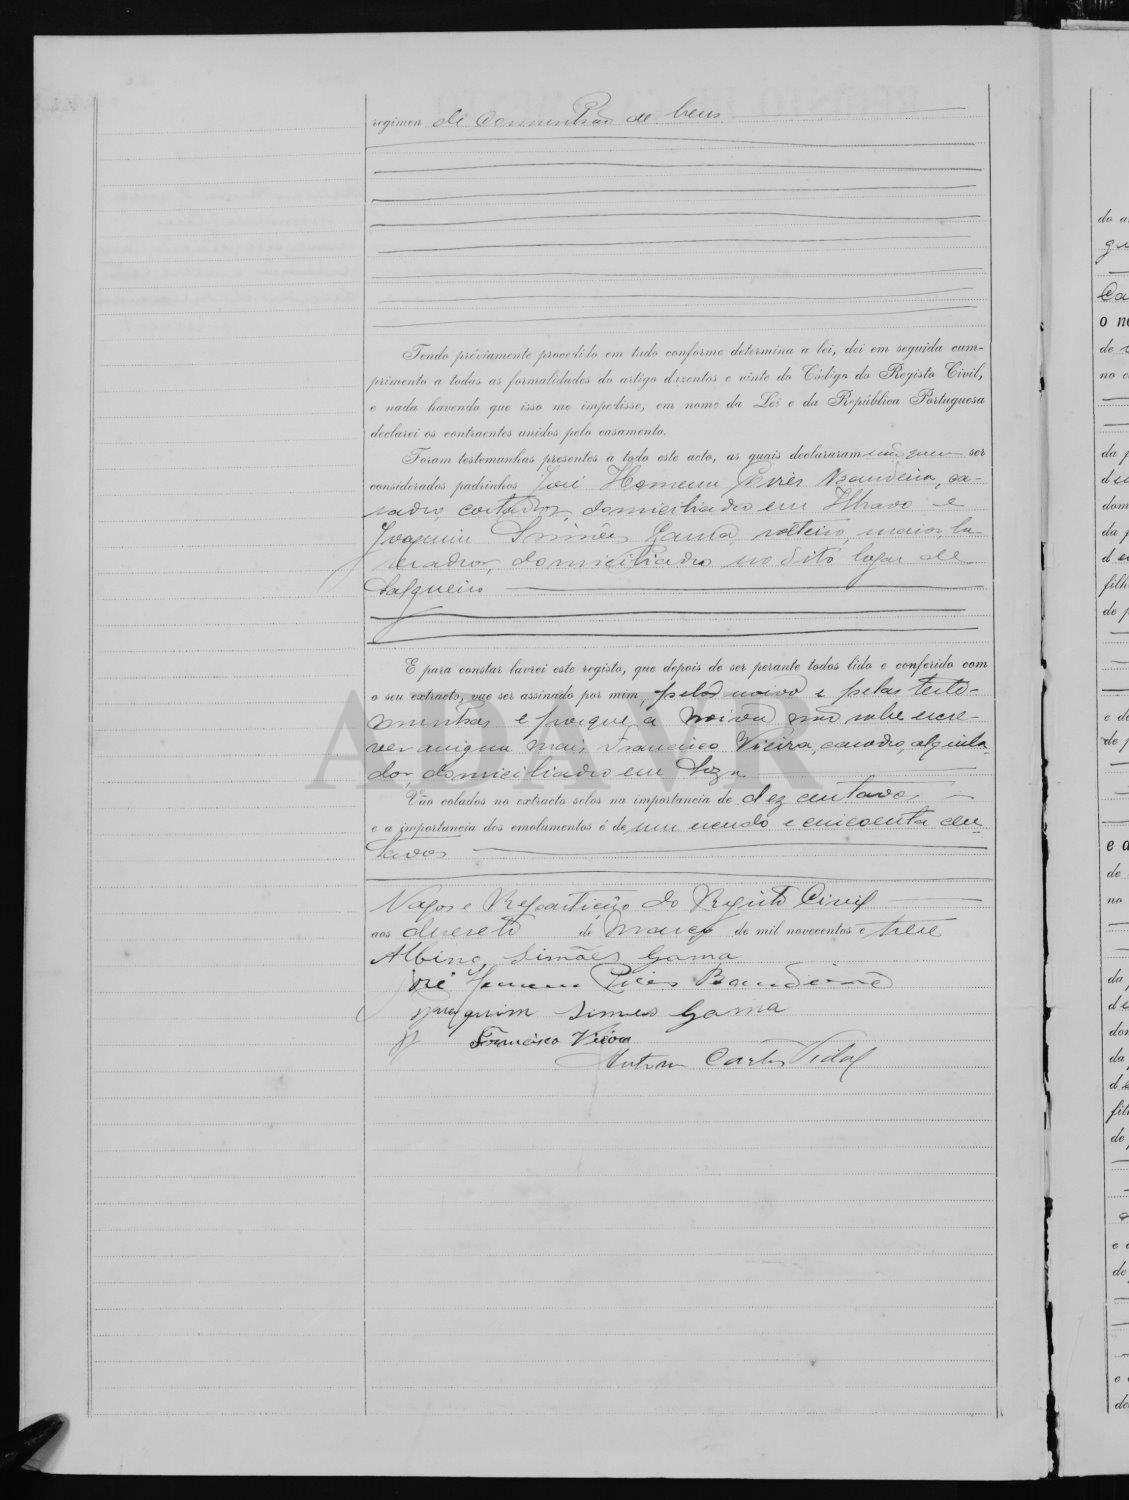 regimen de Communhão de bens
Tendo préviamente procedido em tudo conforme determina a lei, dei em seguida cum-
primento a todas as formalidades do artigo duzentos e vinte do Código do Registo Civil,
e nada havendo que isso me impedisse, em nome da Lei e da República Portuguesa
declarei os contraentes unidos pelo casamento.
Foram testemunhas presentes a todo este acto, as quais declararam não querer ser
considerados padrinhos José Homem Pires Bandeira, ca-
sado, cortador, domiciliado em Ilhavo e
Joaquim Simões Gama, solteiro, maior, la-
vrador, domiciliado no dito logar de
Salgueiro
E para constar lavrei este registo, que depois de ser perante todos lido e conferido com
o seu extracto, vae ser assinado por mim, pelo noivo e pelas teste-
munhas e porque a noiva não sabe escre-
ver assigna mais Francisco Vieira, casado, alquila-
dor, domiciliado em Soza
Vão colados no extracto selos na importancia de dez centavos
e a importancia dos emolumentos é de um escudo e cincoenta cen-
tavos
Vagos e Repartição do Registo Civil
aos dezesete de Março de mil novecentos e treze
Albino Simões Gama
José Homem Pires Bandeira
Joaquim Simões Gama
Francisco Vieira
Antonio Carlos Vidal
ADAVR